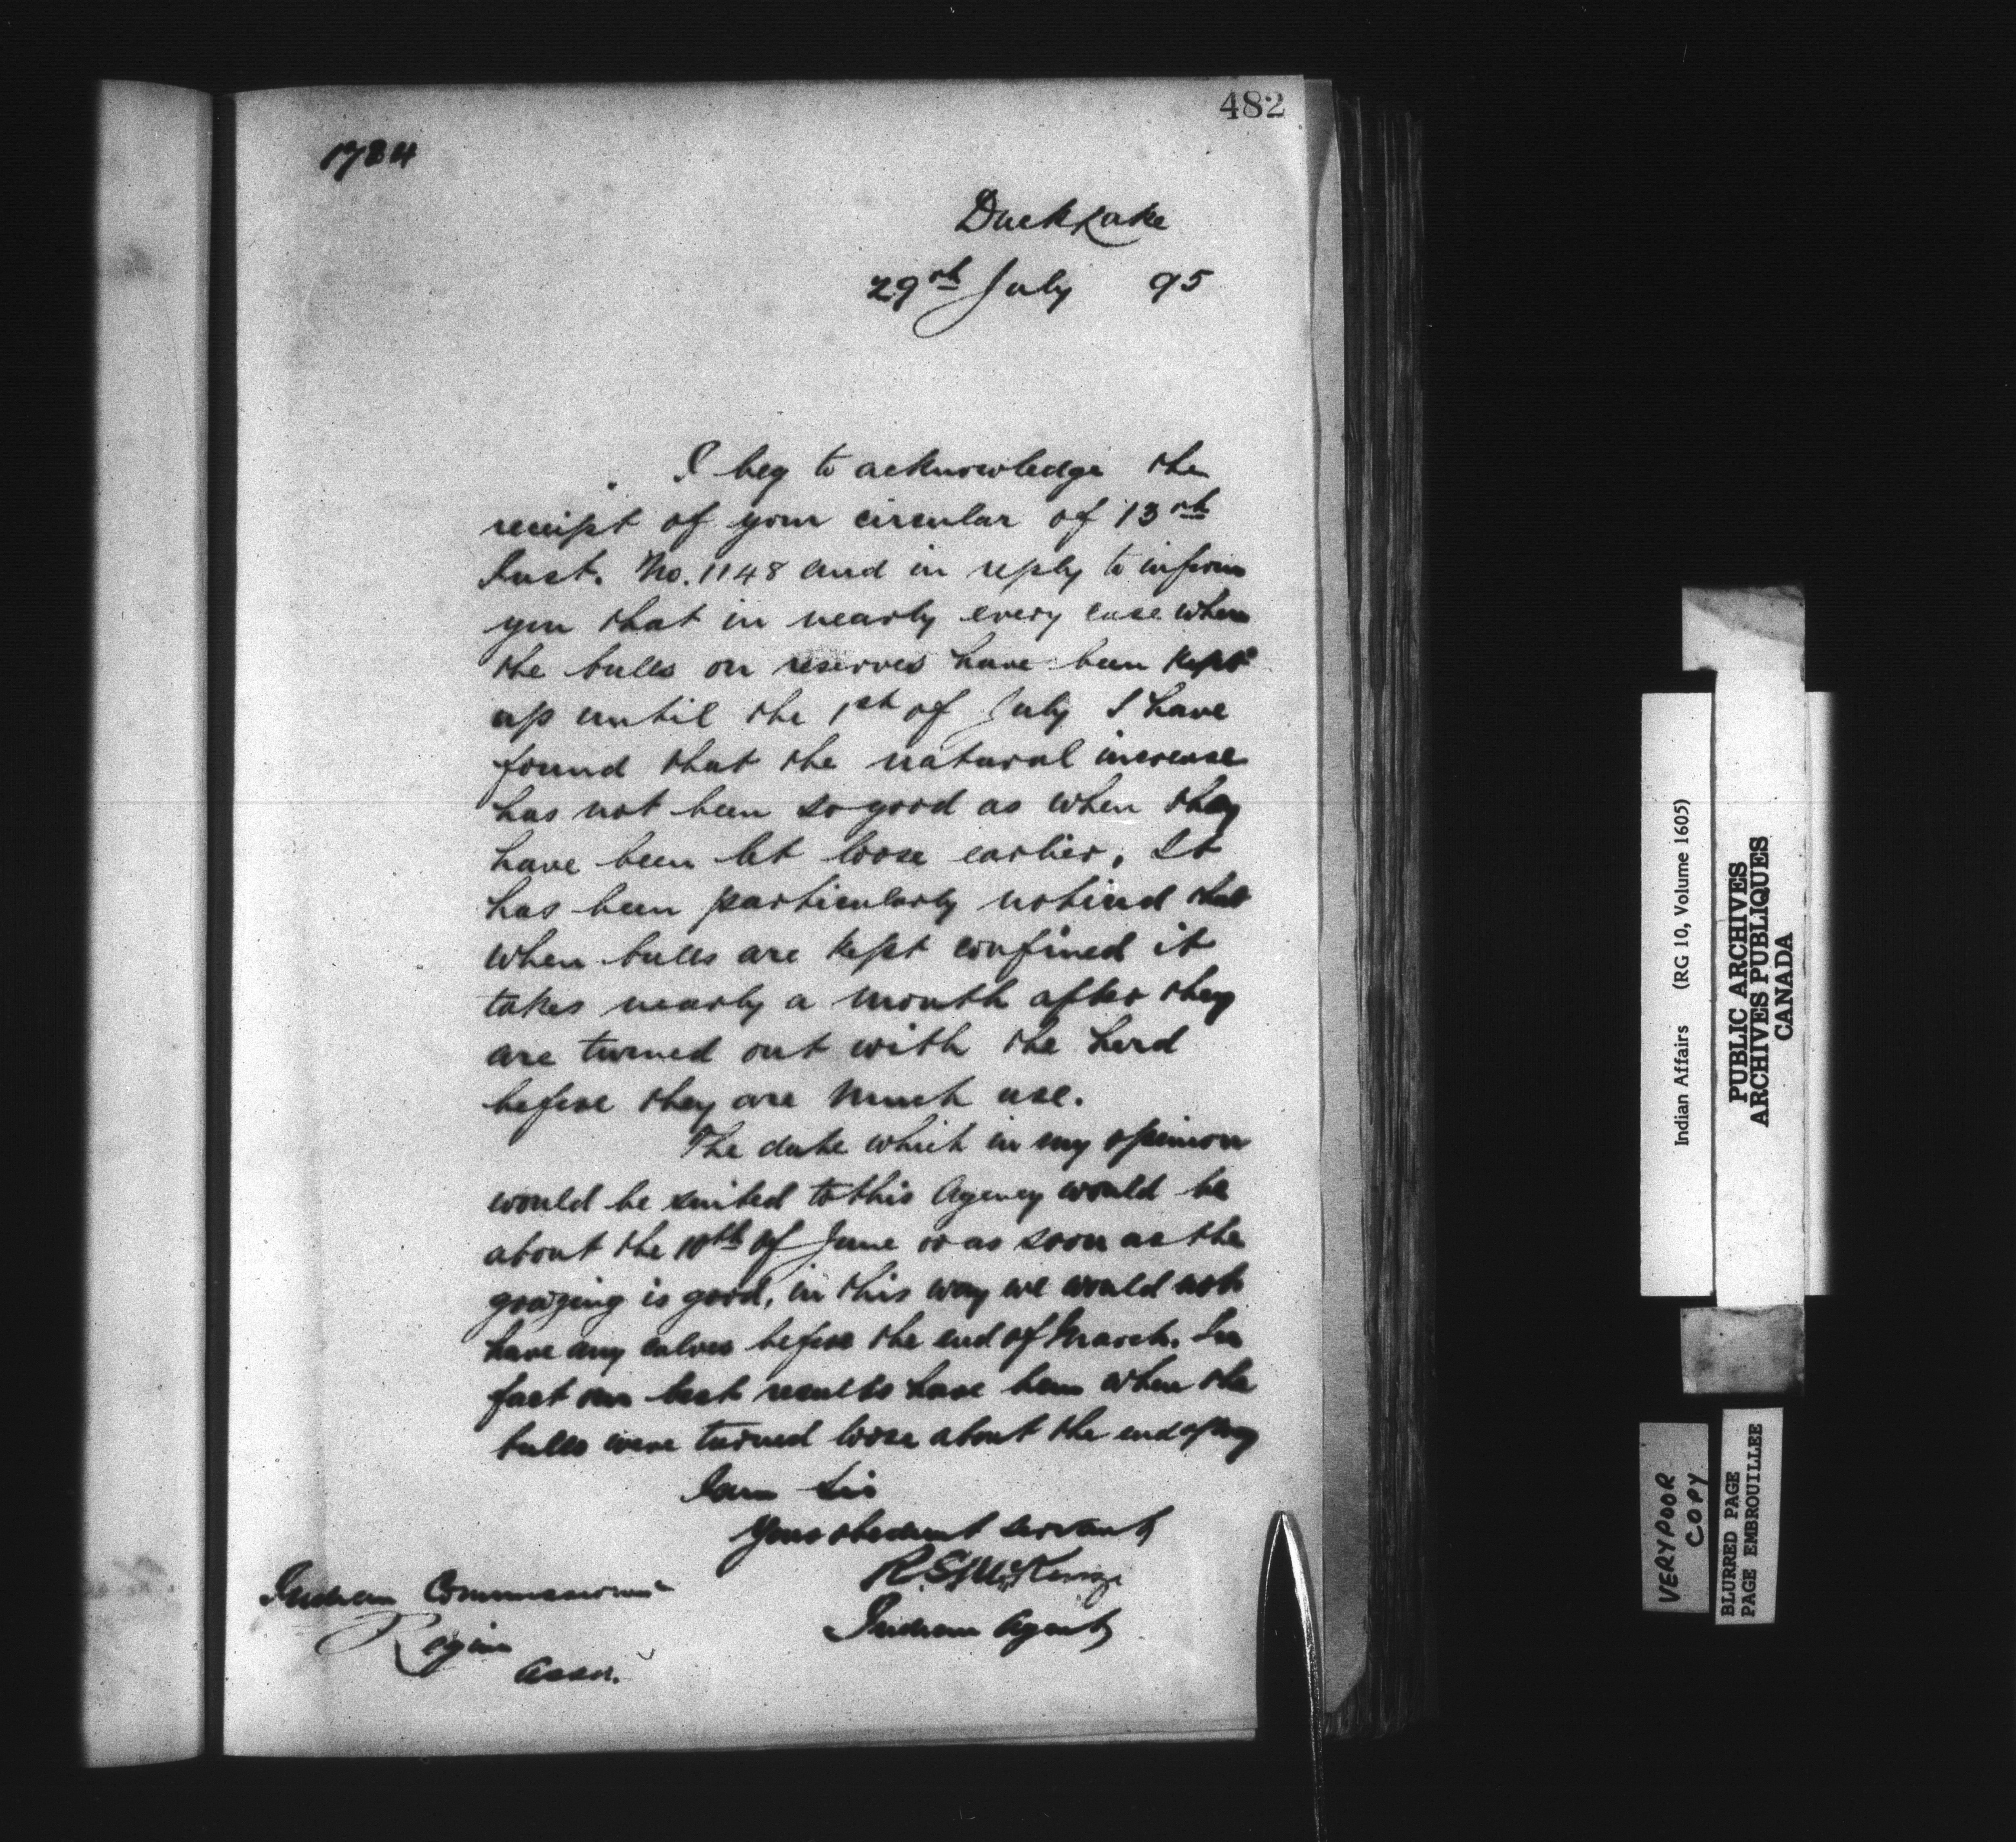 482
1784
Duck Lake
29th July 95
I beg to acknowledge the
receipt of your circular of 13th
Inst. No. 1148 and in reply to inform
you that in nearly every case where
the bulls on reserves have been kept
up until the 1st of July I have
found that the natural increase
has not been so good as when they
have been let loose earlier. It
has been particularly noticed that
when bulls are kept confined it
takes nearly a month after they
are turned out with the herd
before they are much use.
The date which in my opinion
would be suited to this Agency would be
about the 10th of June or as soon as the
grazing is good, in this way we would not
have any calves before the end of March. In
fact our best results have been when the
bulls were turned loose about the end of May
I am Sir
Your obedient servant
R.S. McKenzie
Indian Agent
Indian Commissioner
Regina
Assa.
Indian Affairs (RG 10, Volume 1605)
PUBLIC ARCHIVES
ARCHIVES PUBLIQUES
CANADA
VERY POOR
COPY
BLURRED PAGE
PAGE EMBROUILLEE